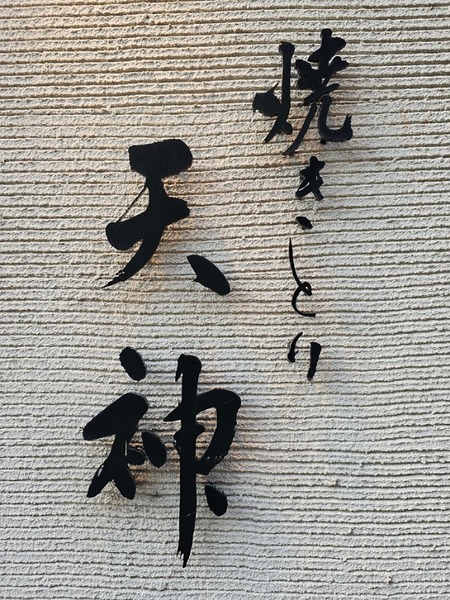 焼きとり
天神